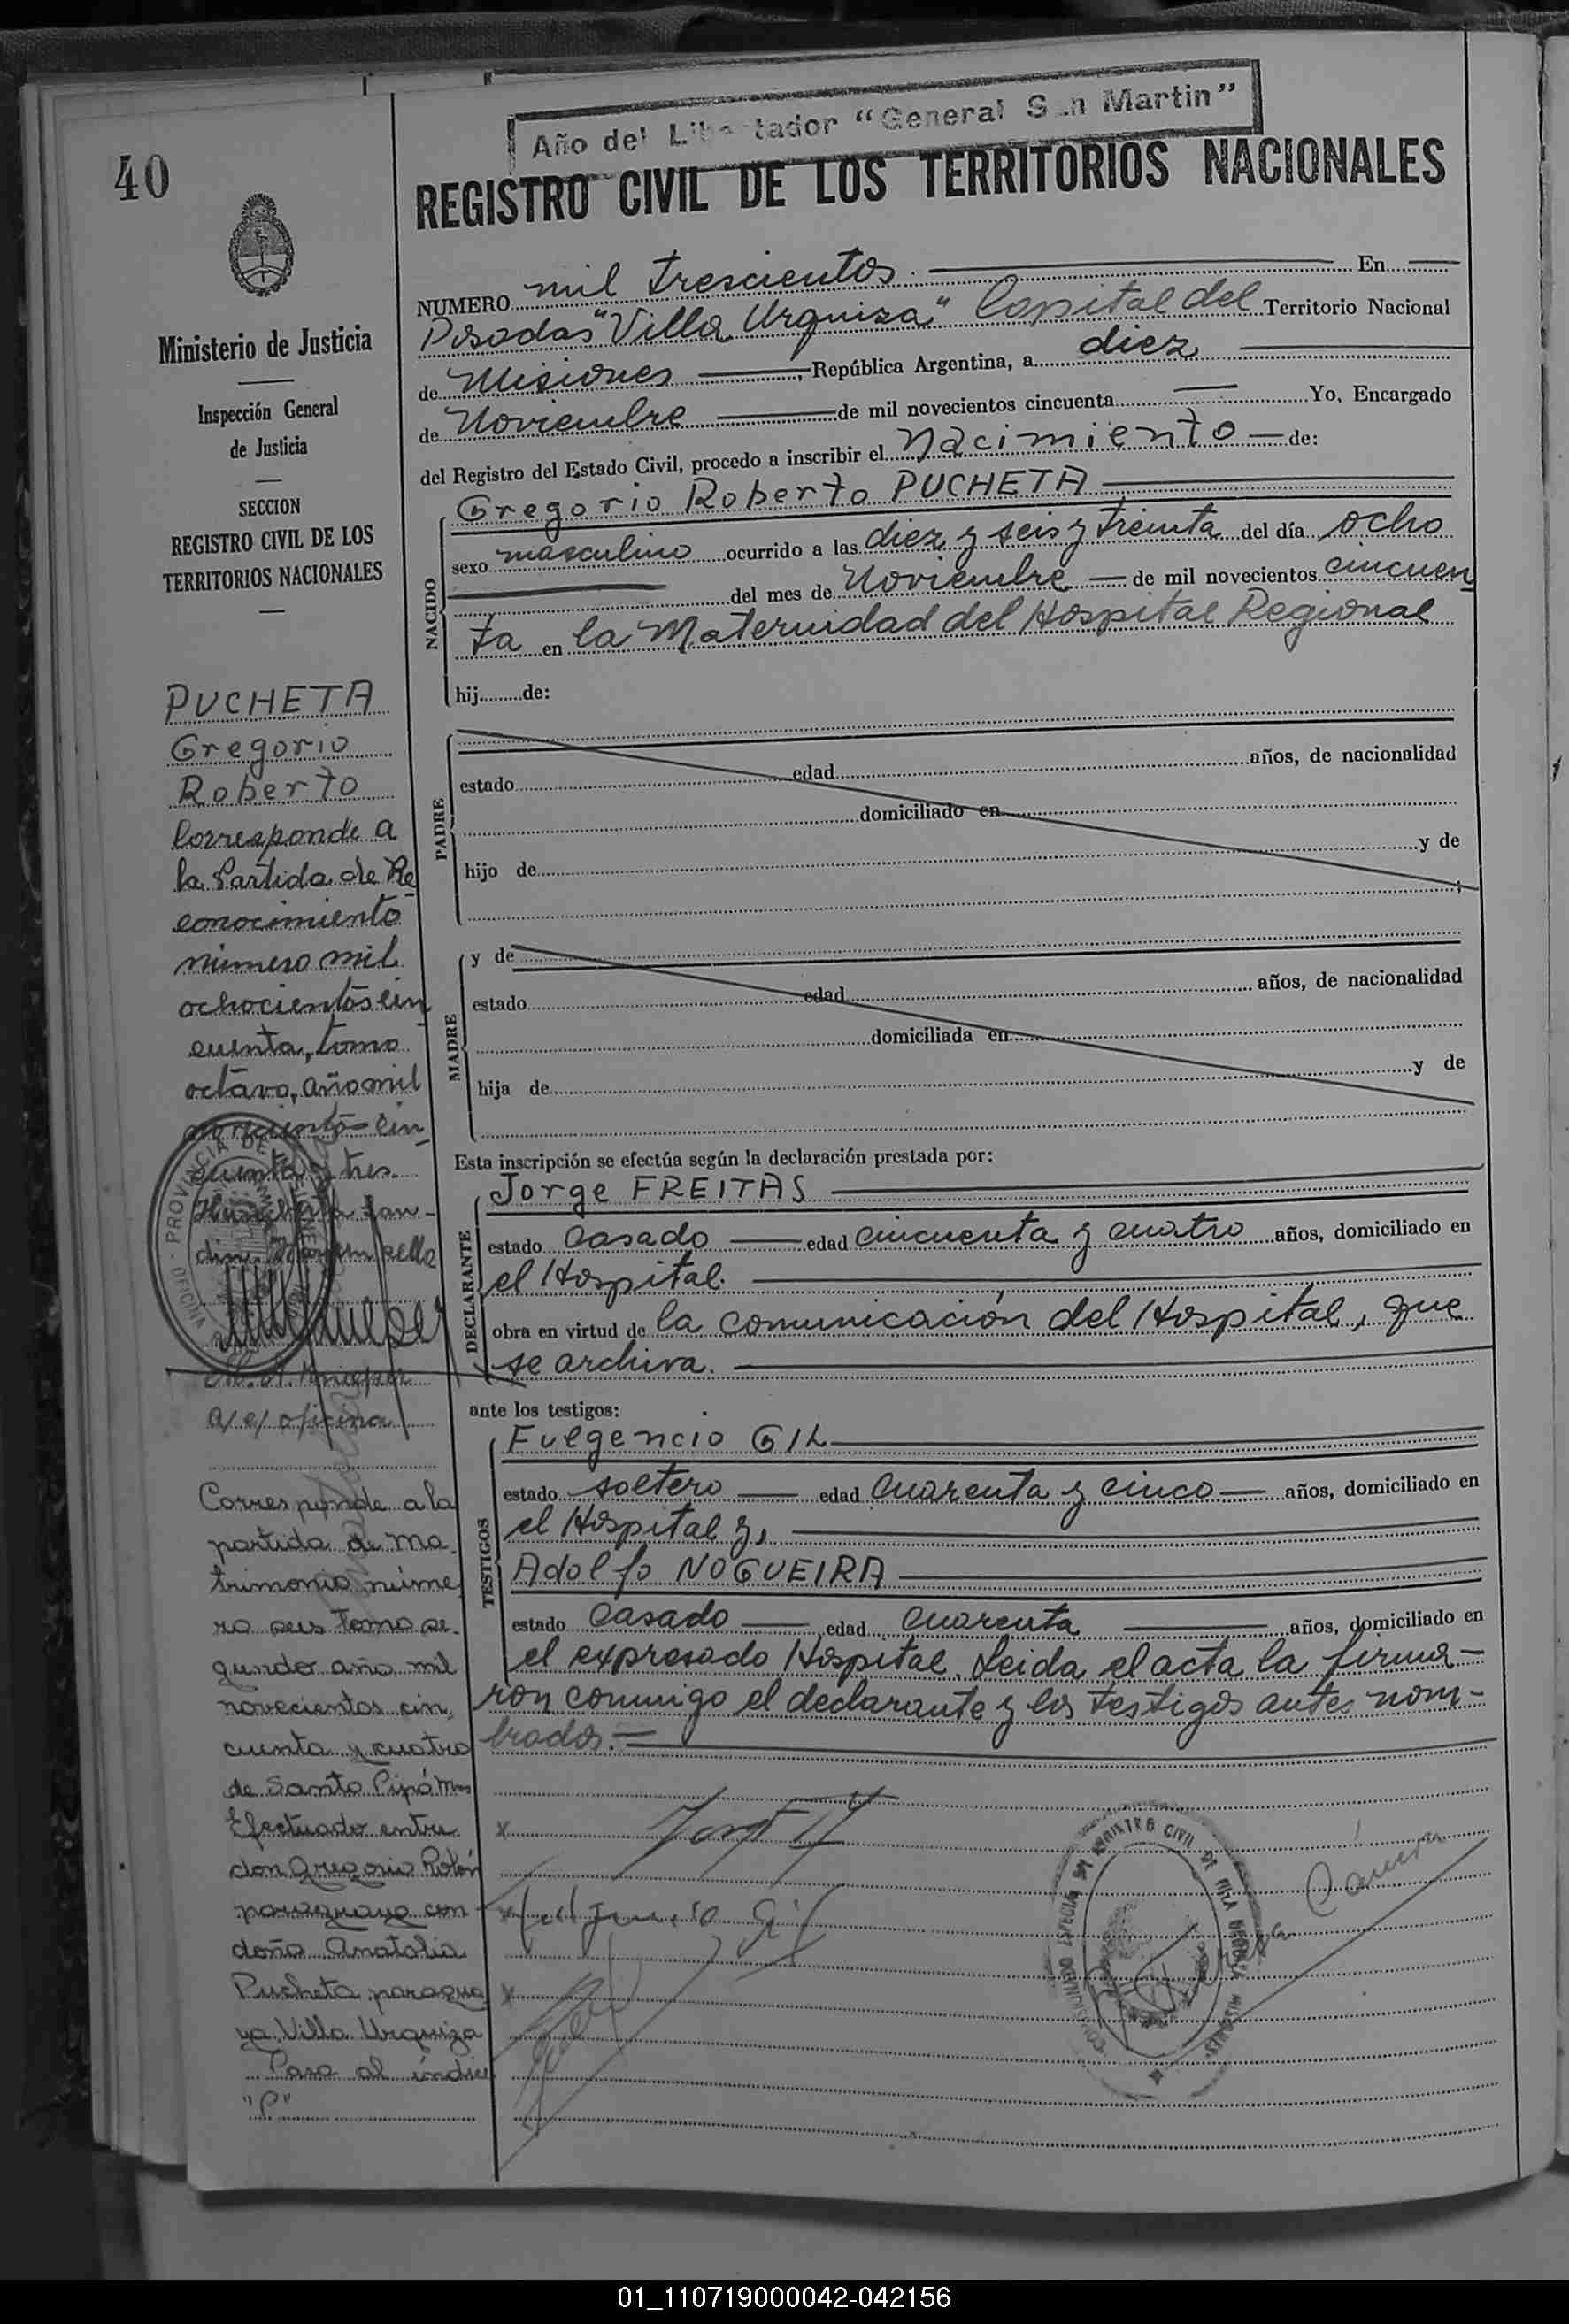 Año del Libertador "General San Martin"
40
REGISTRO CIVIL DE LOS TERRITORIOS NACIONALES
NUMERO mil trescientos. En
Posadas "Villa Urquiza" Capital del Territorio Nacional
de Misiones, República Argentina, a diez
de Noviembre de mil novecientos cincuenta Yo, Encargado
del Registro del Estado Civil, procedo a inscribir el Nacimiento de:
NACIDO
Gregorio Roberto PUCHETA
sexo masculino ocurrido a las diez y seis y treinta del día ocho
del mes de Noviembre de mil novecientos cincuen
ta en la Maternidad del Hospital Regional
hij de:
PADRE
estado edad años, de nacionalidad
domiciliado en
hijo de y de
MADRE
y de
estado edad años, de nacionalidad
domiciliada en
hija de y de
Esta inscripción se efectúa según la declaración prestada por:
DECLARANTE
Jorge FREITAS
estado Casado edad cincuenta y cuatro años, domiciliado en
el Hospital.
obra en virtud de la comunicación del Hospital, que
se archiva.
ante los testigos:
TESTIGOS
Fulgencio GIL
estado soltero edad cuarenta y cinco años, domiciliado en
el Hospital y,
Adolfo NOGUEIRA
estado Casado edad cuarenta años, domiciliado en
el expresado Hospital. Leida el acta la firma-
ron conmigo el declarante y los testigos antes nom-
brados.=
Ministerio de Justicia
Inspección General
de Justicia
SECCION
REGISTRO CIVIL DE LOS
TERRITORIOS NACIONALES
PUCHETA
Gregorio
Roberto
Corresponde a
la Partida de Re
conocimiento
número mil
ochocientos cin
cuenta, tomo
octavo, año mil
novecientos cin
cuenta y tres.
a/c/ oficina
Corresponde a la
partida de Ma
trimonio núme
ro seis Tomo se
gundo año mil
novecientos cin
cuenta y cuatro
de Santo Pipó Mns
Efectuado entre
don Gregorio Rolón
paraguayo con
doña Anatolia
Pucheta paragua
ya. Villa Urquiza
Pasa al índice
"P"
01_110719000042-042156